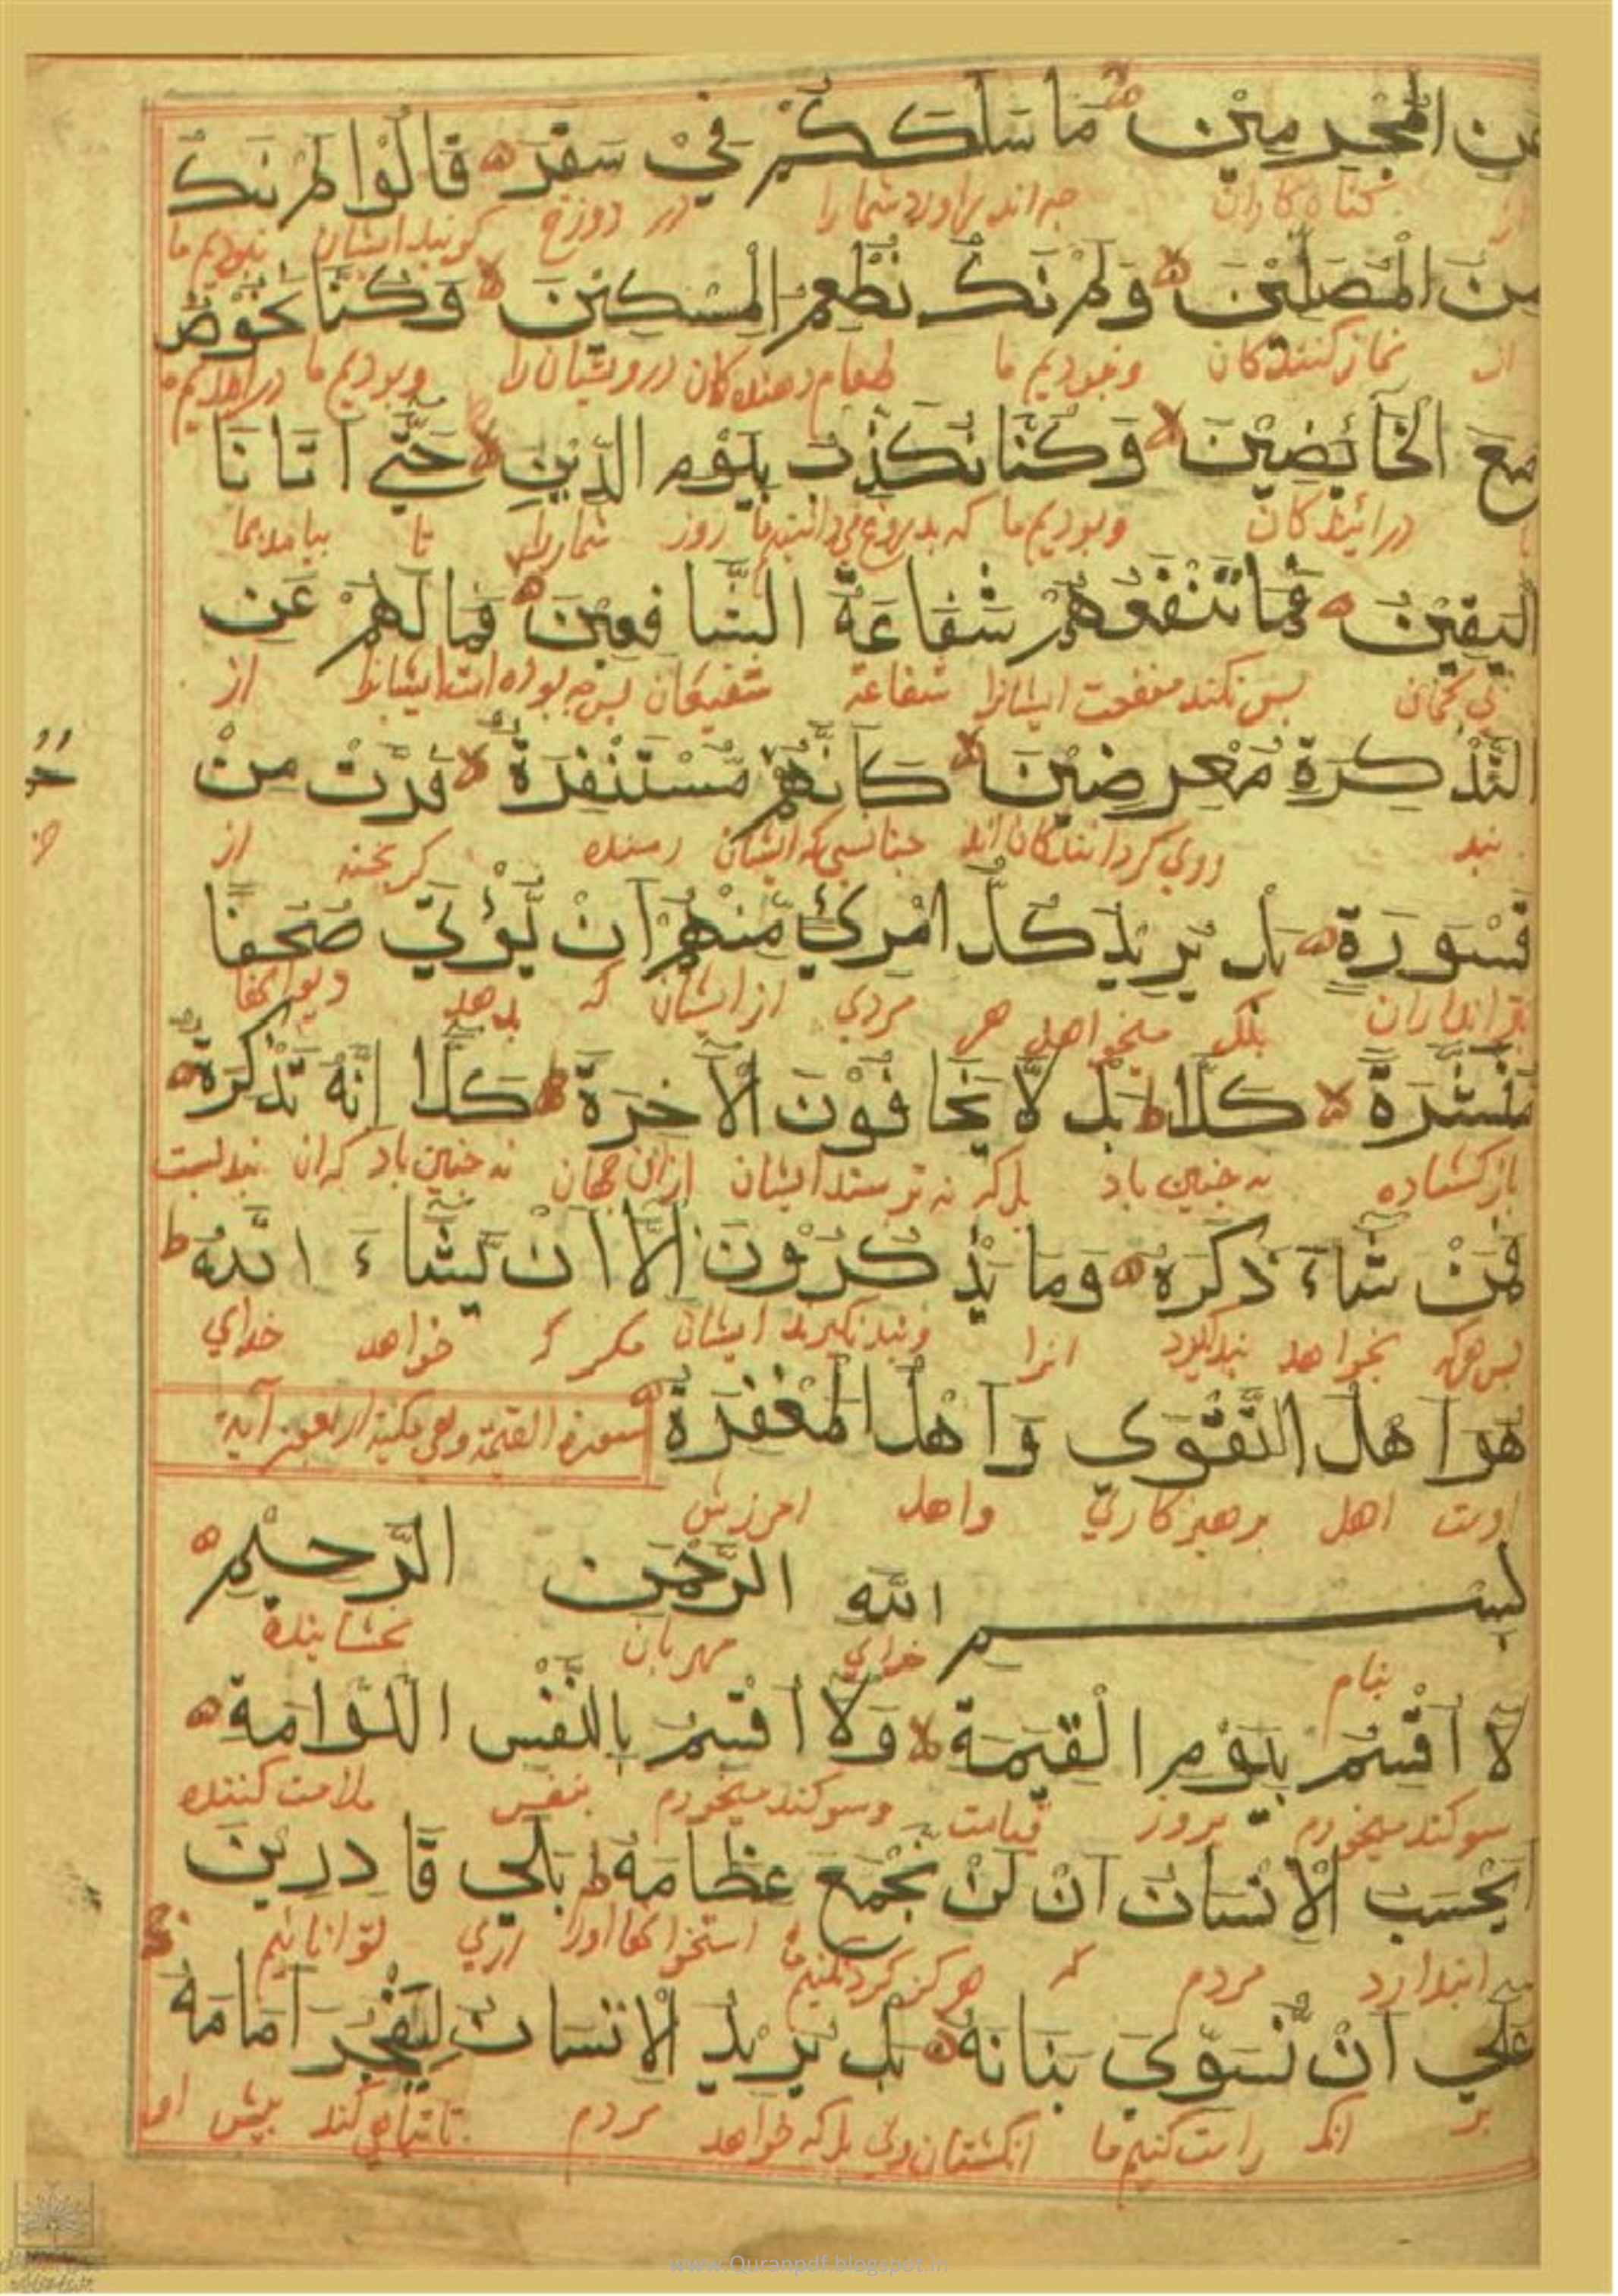 عن المجرمين ما سلككم في سقر قالوا لم نك
از گناه کاران چه اندر اورد شما را در دوزخ گویند ایشان نبودیم ما
من المصلين ولم نك نطعم المسكين وكنا نخوض
از نماز کنندکان ونبودیم ما طعام دهندکان درویشان را وبودیم ما
مع الخائضين وكنا نكذب بيوم الدين حتى اتانا
با درایندکان وبودیم ما که بدروغ روز شمار تا بیامد بما
اليقين فما تنفعهم شفاعة الشافعين فما لهم عن
بی کمان پس نکند منفعت ایشانرا شفاعة شفیعان پس چه بوده است ایشانرا از
التذكرة معرضين كانهم مستنفرة فرت من
پند روی کردانندکان اند ایشان رمنده کریخته از
قسورة بل يريد كل امرئ منهم ان يؤتى صحفا
تیر اندازان بلک میخواهد هر مردی از ایشان که بدهد
منشرة كلا بل لا يخافون الآخرة كلا انه تذكرة
باز کشاده نه چنین باد بل که نه ترسند ایشان از ان جهان نه چنین باد که ان پندیست
فمن شاء ذكره وما يذكرون الا ان يشاء الله
پس هرکه بخواهد پند گیرد انرا وپند نکیرند ایشان مکر که خواهد خدای
هو اهل التقوى واهل المغفرة سورة القيمة وهي مكية اربعون آية
اوست اهل پرهیزکاری واهل امرزش
بسم الله الرحمن الرحيم
بنام خدای مهربان بخشاینده
لا اقسم بيوم القيمة ولا اقسم بالنفس اللوامة
سوکند میخورم بروز قیامت وسوکند میخورم بنفس ملامت کننده
ايحسب الانسان ان لن نجمع عظامه بلى قادرين
مردم که هرکز کرد نکنیم ما استخوانها اورا اری توانائیم
على ان نسوي بنانه بل يريد الانسان ليفجر امامه
بر انک راست کنیم ما انکشتان وی بل که خواهد مردم تا تباهی کند پیش او
www.Quranpdf.blogspot.in